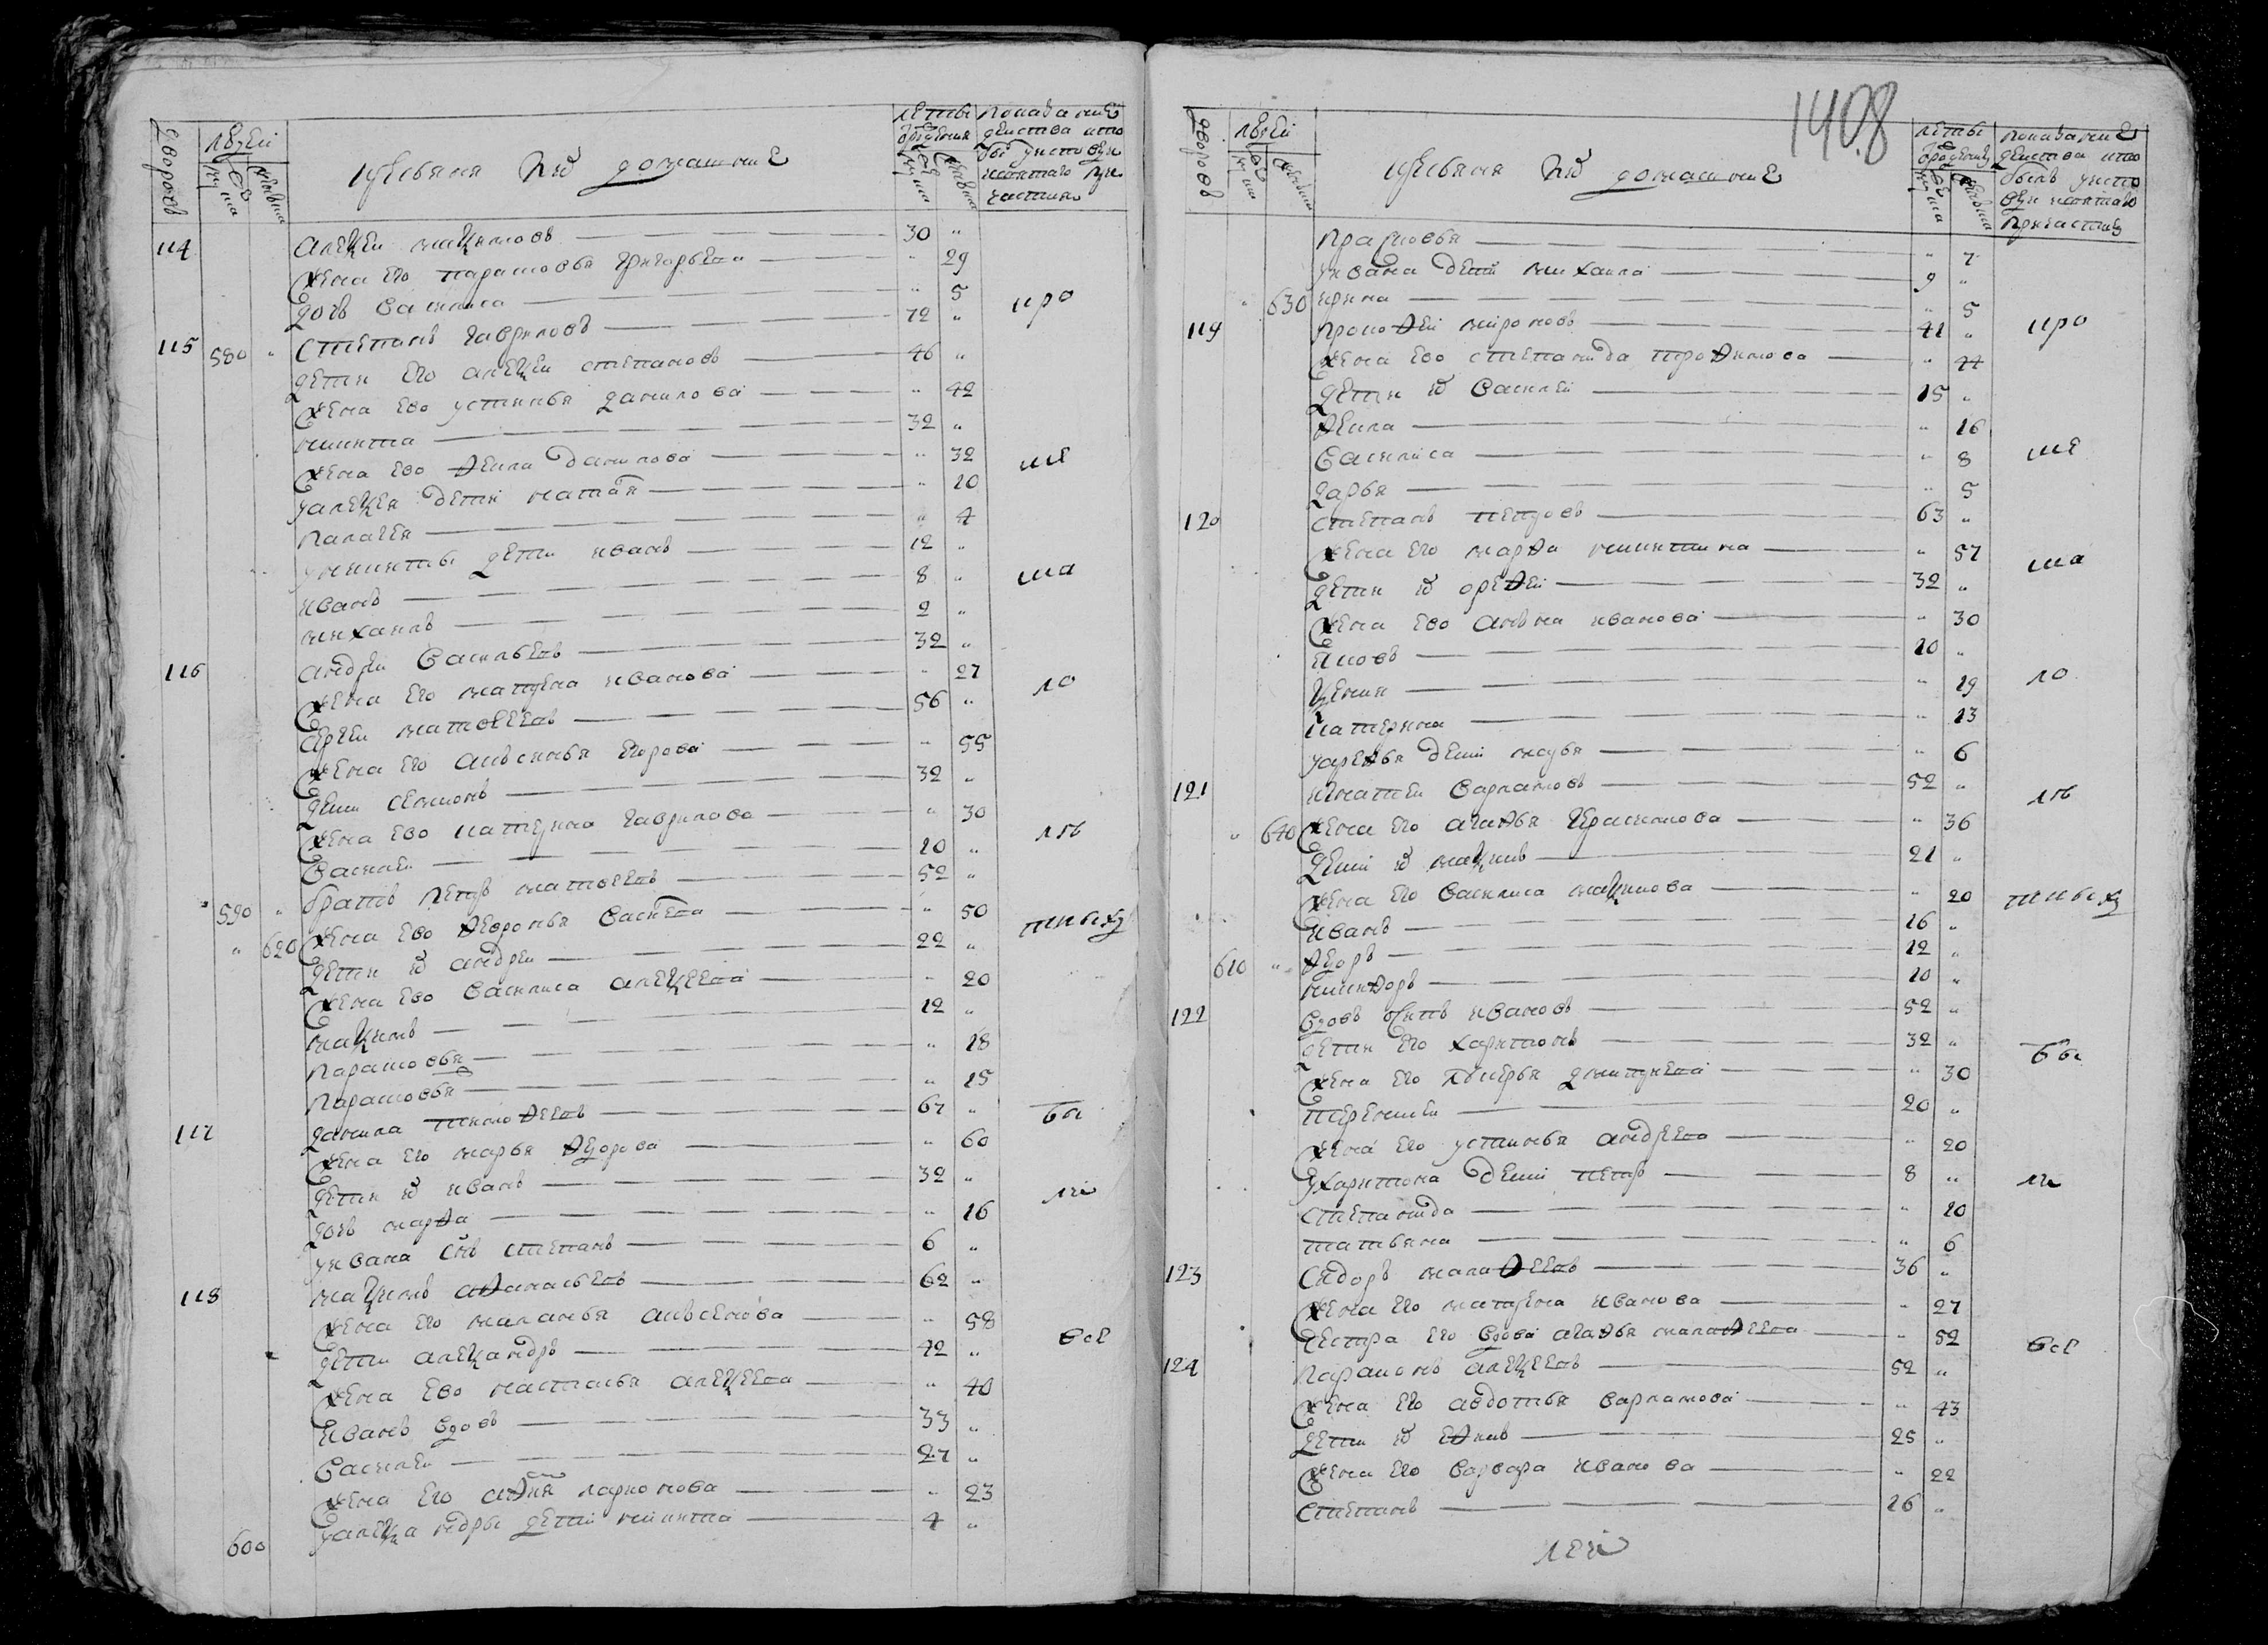 дворовъ
людеи
крестьяня ихъ домашние
114 Алеѯеи маѯимовъ 30 „
жена его парасковья григорьева „ 29
дочь василиса „ 5
115 580 „ степанъ гавриловъ 72 „
дети его алеѯеи степановъ 46 „
жена ево устинья данилова „ 42
никита 32 „
жена ево ѳекла данилова „ 32
у алеѯея дети наталя „ 10
палагея „ 4
у никиты дети иванъ 12 „
иванъ 8 „
михаилъ 2 „
116 андреи васильевъ 32 „
жена его матрена иванова „ 27
сергеи матвеевъ 56 „
жена его аксинья егорова „ 55
дети семионъ 32 „
жена ево катерина гаврилова „ 30
василеи 10 „
братъ петръ матвеевъ 52 „
590 „
„ 620 жена ево ѳевронья васильева „ 50
дети их андреи 22 „
жена ево василиса алеѯеева „ 20
маѯимъ 12 „
парасковья „ 18
парасковья „ 15
117 данила тимоѳеевъ 67 „
жена его марья ѳедорова „ 60
дети их иванъ 32 „
дочь марѳа „ 16
у ивана сынъ степанъ 6 „
118 маѯимъ аѳанасьевъ 62 „
жена его маланья аксенова „ 58
дети алеѯандръ 42 „
жена ево настасья алеѯеева „ 40
иванъ вдовъ 33 „
василеи 27 „
жена его ларионова „ 23
600 у алеѯандры дети никита 4 „
про
ше
ша
ло
лѣ
тныхъ
бы
ли
все
1408
дворовъ
людеи
крестьяня ихъ домашние
Прасковья „ 7
у ивана дети михаила 9 „
„ 630 ирина „ 5
119 прокоѳеи мироновъ 41 „
жена ево степанида троѳимова „ 44
дети их василеи 15 „
ѳекла „ 16
василиса „ 8
дарья „ 5
120 степанъ петровъ 63 „
жена его марѳа никитина „ 57
дети их ореѳеи 32 „
жена ево анна иванова „ 30
яковъ 10 „
ѯения „ 19
катерина „ 13
у ареѳья дети марья „ 6
121 игнатеи варламовъ 52 „
„ 640 жена его агаѳья герасимова „ 36
дети их маѯимъ 21 „
жена его василиса маѯимова „ 20
иванъ 16 „
610 „ ѳедоръ 12 „
никиѳоръ 10 „
122 вдовъ иванов 52 „
дети его харитонъ 32 „
жена его дмитриева „ 30
терентеи 20 „
жена его устинья андреева „ 20
у харитона дети петръ 8 „
степанида „ 10
татьяна „ 6
123 сидоръ малаѳеевъ 36 „
жена его матрена иванова „ 27
сестра его вдова агаѳья малаѳеева „ 52
124 парамонъ алеѯеевъ 52 „
жена его авдотья варламова „ 43
дети их еѳимъ 25 „
жена его варвара иванова „ 22
степанъ 16 „
про
ше
ша
ло
лѣ
тныхъ
бы
ли
все